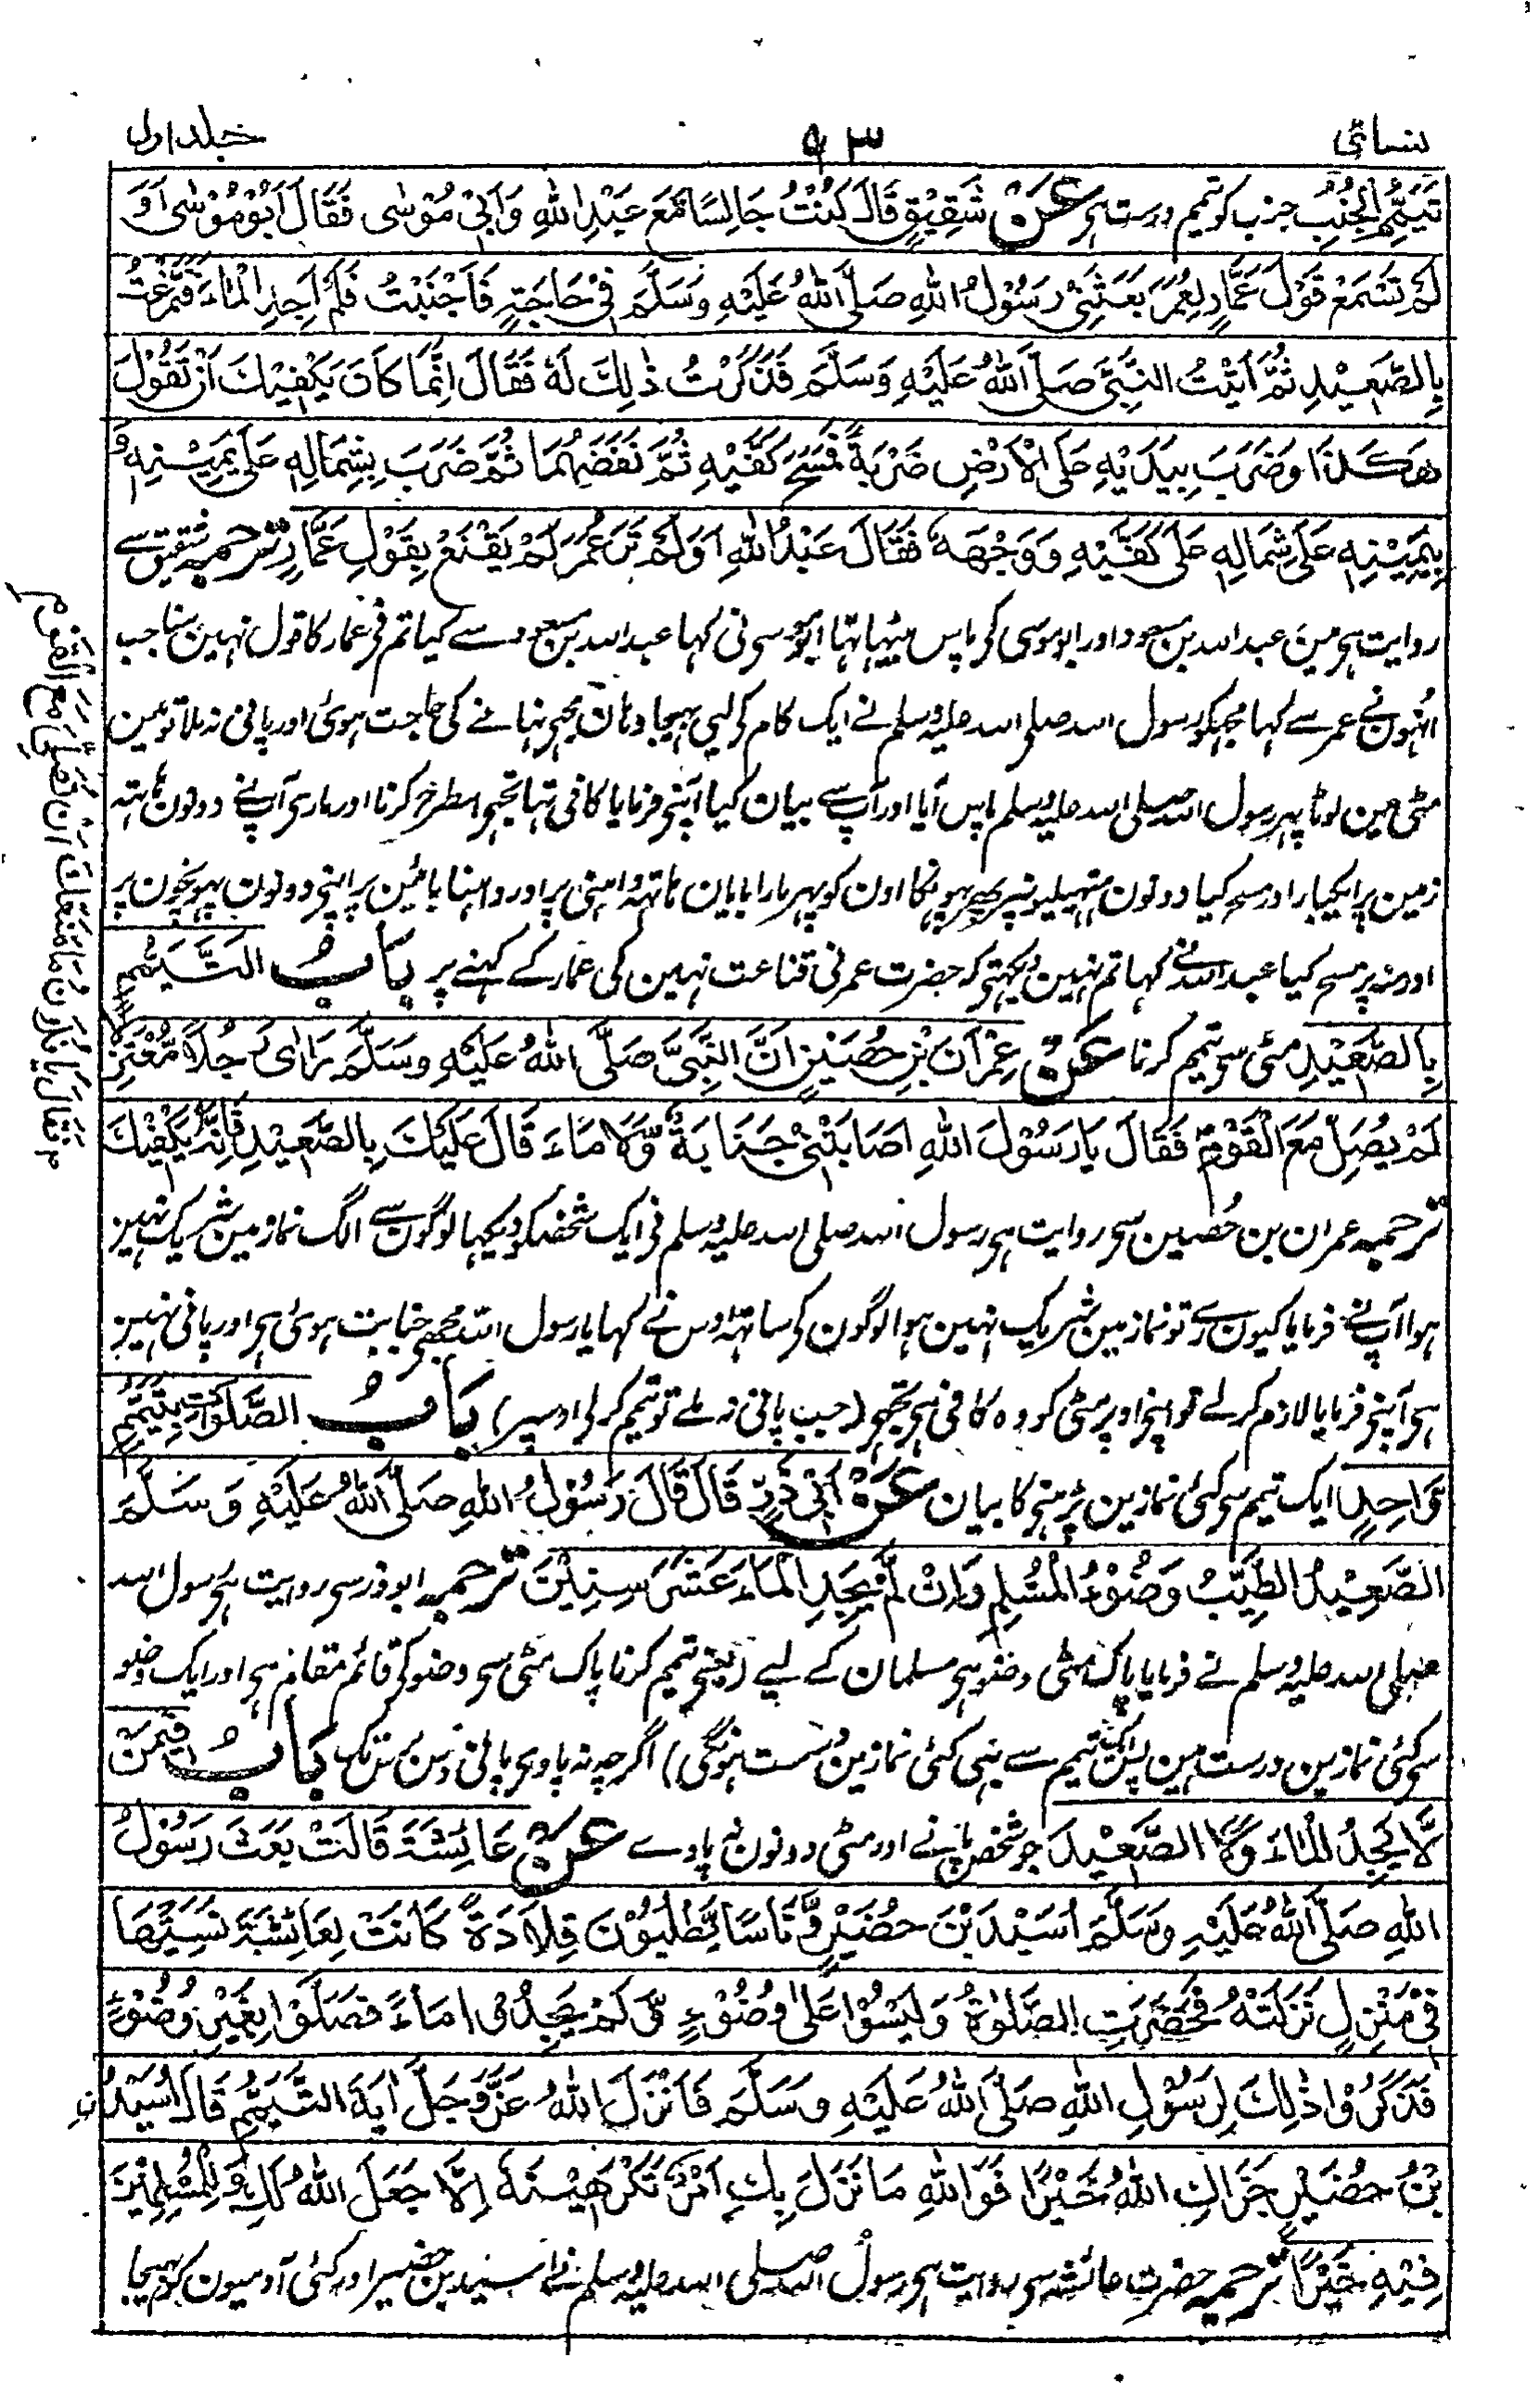 نسائی ۹۳ جلد اول
تَيَمُّمِ الْجُنُبِ جنب کو تیمم درست ہی عَنْ شَقِيْقٍ قَالَ كُنْتُ جَالِسًا مَّعَ عَبْدِ اللّٰهِ وَاَبِيْ مُوْسٰى فَقَالَ اَبُوْ مُوْسٰى اَوَ
لَمْ تَسْمَعْ قَوْلَ عَمَّارٍ لِعُمَرَ بَعَثَنِيْ رَسُوْلُ اللّٰهِ صَلَّى اللّٰهُ عَلَيْهِ وَسَلَّمَ فِيْ حَاجَةٍ فَاَجْنَبْتُ فَلَمْ اَجِدِ الْمَاءَ فَتَمَرَّغْتُ
بِالصَّعِيْدِ ثُمَّ اَتَيْتُ النَّبِيَّ صَلَّى اللّٰهُ عَلَيْهِ وَسَلَّمَ فَذَكَرْتُ ذٰلِكَ لَهٗ فَقَالَ اِنَّمَا كَانَ يَكْفِيْكَ اَنْ تَقُوْلَ
هٰكَذَا وَضَرَبَ بِيَدَيْهِ عَلَى الْاَرْضِ ضَرْبَةً فَمَسَحَ كَفَّيْهِ ثُمَّ نَفَضَهُمَا ثُمَّ ضَرَبَ بِشِمَالِهٖ عَلٰى يَمِيْنِهٖ وَ
بِيَمِيْنِهٖ عَلٰى شِمَالِهٖ عَلٰى كَفَّيْهِ وَوَجْهِهٖ فَقَالَ عَبْدُ اللّٰهِ اَوَلَمْ تَرَ عُمَرَ لَمْ يَقْنَعْ بِقَوْلِ عَمَّارٍ ترجمہ شقیق سے
روایت ہی مین عبد اللہ بن مسعود اور ابو موسی کی پاس بیٹہا تہا ابو موسی نی کہا عبد اللہ بن مسعود سے کیا تم نی عمار کا قول نہین سنا جب
انہون نے عمر سے کہا مجہکو رسول اللہ صلی اللہ علیہ وسلم نے ایک کام کی لیی بہیجا وہان مجہی نہانے کی حاجت ہوئی اور پانی نہ ملا تو مین
مٹی مین لوٹا پہر رسول اللہ صلی اللہ علیہ وسلم پاس آیا اور آپ سے بیان کیا آپنی فرمایا کافی تہا تجہی اسطرح کرنا اور ماری آپنے دونون ہاتہ
زمین پر ایکبار اور مسح کیا دونون ہتہیلیونپر پہر پہونکا اون کو پہر مارا بایان ہاتہ داہنی پر اور داہنا بائین پر اپنی دونون پہونچون پر
اور منہ پر مسح کیا عبد اللہ نے کہا تم نہین دیکہتی کہ حضرت عمر نی قناعت نہین کی عمار کے کہنے پر بَابُ التَّيَمُّمِ
بِالصَّعِيْدِ مٹی سی تیمم کرنا عَنْ عِمْرَانَ بْنِ حُصَيْنٍ اَنَّ النَّبِيَّ صَلَّى اللّٰهُ عَلَيْهِ وَسَلَّمَ رَاٰى رَجُلًا مُّعْتَزِلًا
لَمْ يُصَلِّ مَعَ الْقَوْمِ فَقَالَ يَا رَسُوْلَ اللّٰهِ اَصَابَتْنِيْ جَنَابَةٌ وَّلَا مَاءَ قَالَ عَلَيْكَ بِالصَّعِيْدِ فَاِنَّهٗ يَكْفِيْكَ
ترجمہ عمران بن حصین سی روایت ہی رسول اللہ صلی اللہ علیہ وسلم نی ایک شخص کو دیکہا لوگون سے الگ نماز مین شریک نہین
ہوا آپنے فرمایا کیون رے تو نماز مین شریک نہین ہوا لوگون کی ساتہ اوس نے کہا یا رسول اللہ مجہی جنابت ہوئی ہی اور پانی نہین
ہی آپنی فرمایا لازم کر لے تو اپنی اوپر مٹی کو وہ کافی ہی تجہی (جب پانی نہ ملے تو تیمم کر لی اوسپر) بَابُ الصَّلَوَاتِ بِتَيَمُّمٍ
وَّاحِدٍ ایک تیمم سی کئی نمازین پڑہنی کا بیان عَنْ اَبِيْ ذَرٍّ قَالَ قَالَ رَسُوْلُ اللّٰهِ صَلَّى اللّٰهُ عَلَيْهِ وَسَلَّمَ
الصَّعِيْدُ الطَّيِّبُ وَضُوْءُ الْمُسْلِمِ وَاِنْ لَّمْ يَجِدِ الْمَاءَ عَشْرَ سِنِيْنَ ترجمہ ابو ذر سی روایت ہی رسول اللہ
صلی اللہ علیہ وسلم نے فرمایا پاک مٹی وضو ہی مسلمان کے لیے (یعنی تیمم کرنا پاک مٹی سی وضو کی قائم مقام ہی اور ایک وضو
سی کئی نمازین درست ہین پس ایک تیمم سے بہی کئی نمازین درست ہونگی) اگرچہ نہ پاوی پانی دس برس تک بَابُ فِيْمَنْ
لَّا يَجِدُ الْمَاءَ وَلَا الصَّعِيْدَ جو شخص پانی اور مٹی دونون نہ پاوے عَنْ عَائِشَةَ قَالَتْ بَعَثَ رَسُوْلُ
اللّٰهِ صَلَّى اللّٰهُ عَلَيْهِ وَسَلَّمَ اُسَيْدَ بْنَ حُضَيْرٍ وَّنَاسًا يَّطْلُبُوْنَ قِلَادَةً كَانَتْ لِعَائِشَةَ نَسِيَتْهَا
فِيْ مَنْزِلٍ نَزَلَتْهُ فَحَضَرَتِ الصَّلٰوةُ وَلَيْسُوْا عَلٰى وُضُوْءٍ وَّلَمْ يَجِدُوْا مَاءً فَصَلَّوْا بِغَيْرِ وُضُوْءٍ
فَذَكَرُوْا ذٰلِكَ لِرَسُوْلِ اللّٰهِ صَلَّى اللّٰهُ عَلَيْهِ وَسَلَّمَ فَاَنْزَلَ اللّٰهُ عَزَّ وَجَلَّ اٰيَةَ التَّيَمُّمِ قَالَ اُسَيْدُ
بْنُ حُضَيْرٍ جَزَاكِ اللّٰهُ خَيْرًا فَوَاللّٰهِ مَا نَزَلَ بِكِ اَمْرٌ تَكْرَهِيْنَهٗ اِلَّا جَعَلَ اللّٰهُ لَكِ وَلِلْمُسْلِمِيْنَ
فِيْهِ خَيْرًا ترجمہ حضرت عائشہ سی روایت ہی رسول اللہ صلی اللہ علیہ وسلم نے اسید بن حضیر اور کئی آدمیون کو بہیجا
فَقَالَ يَا فُلَانُ مَا مَنَعَكَ اَنْ تُصَلِّيَ مَعَ الْقَوْمِ